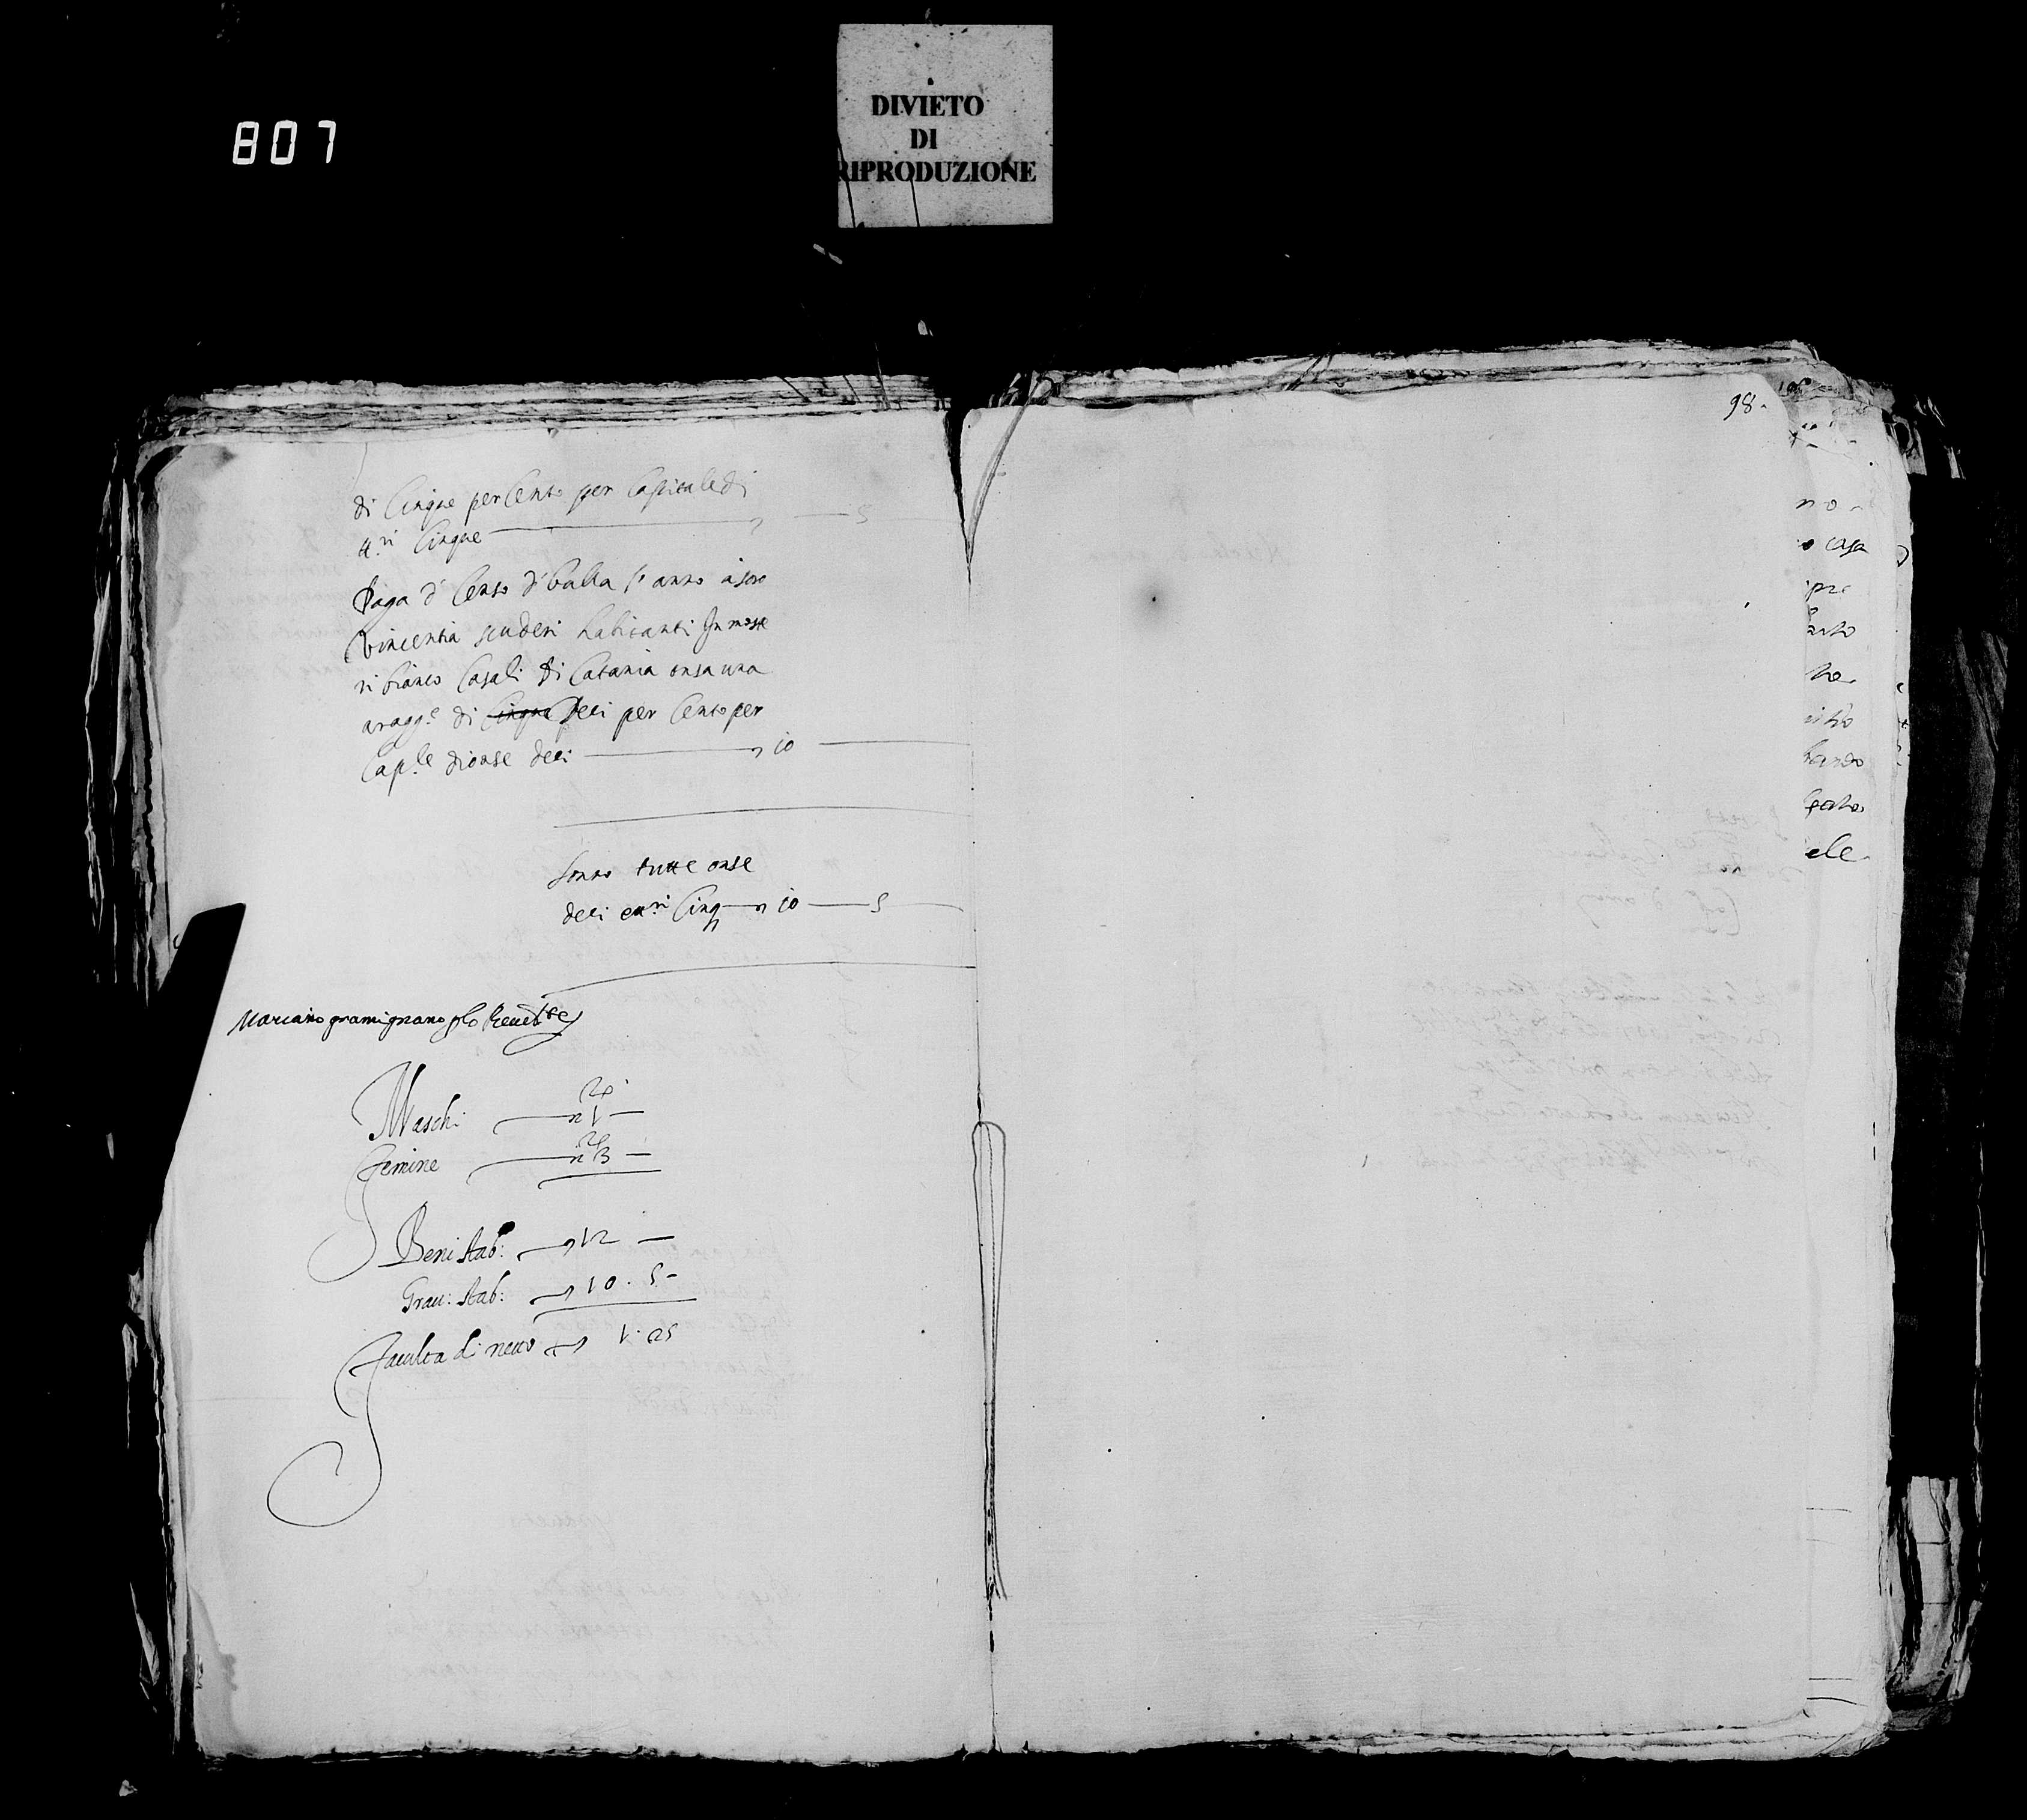 807
DIVIETO
DI
RIPRODUZIONE
98.
di Cinque per Cento per Capitale di
tt.ri Cinque — 5
Paga di Censo di bulla l'anno à soro
Vincentia scuderi habitanti In maste
ri bianco Casali di Catania onsa una
a ragg.e di Cinque Deci per Cento per
Cap.le di onse deci — 10 —
Sonno tutte onse
deci e tt.ri Cinq — 10 — 5
Marcano gramignano
Maschi — n 1 —
Femine — n 3 —
Beni stab: — 12 —
Grav: stab: — 10 . 5 —
Faculta di netto — 1 . 25
no
casa
pre
ele